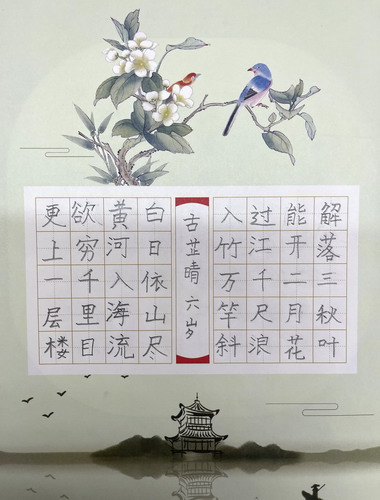 解落三秋叶
能开二月花
过江千尺浪
入竹万竿斜
古芷晴 六岁
白日依山尽
黄河入海流
欲穷千里目
更上一层楼